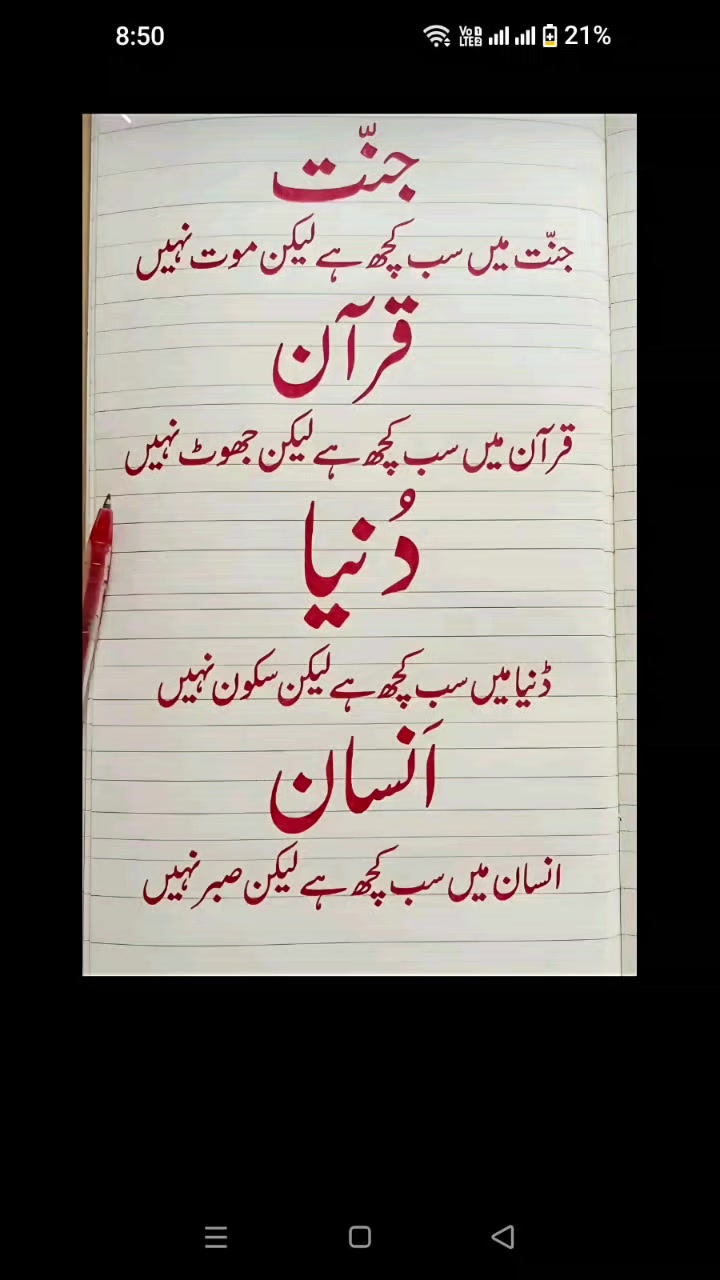 8:50 Vo 1 LTE 2 21%
جنّت
جنّت میں سب کچھ ہے لیکن موت نہیں
قرآن
قرآن میں سب کچھ ہے لیکن جھوٹ نہیں
دُنیا
دُنیا میں سب کچھ ہے لیکن سکون نہیں
اَنسان
انسان میں سب کچھ ہے لیکن صبر نہیں